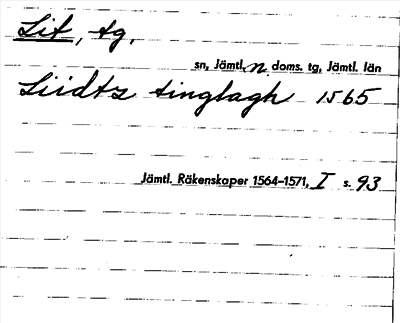 Lit, tg,
sn, Jämtl. n. doms. tg, Jämtl. län
Liidtz tinglagh 1565
Jämtl. Räkenskaper 1564–1571, I s. 93